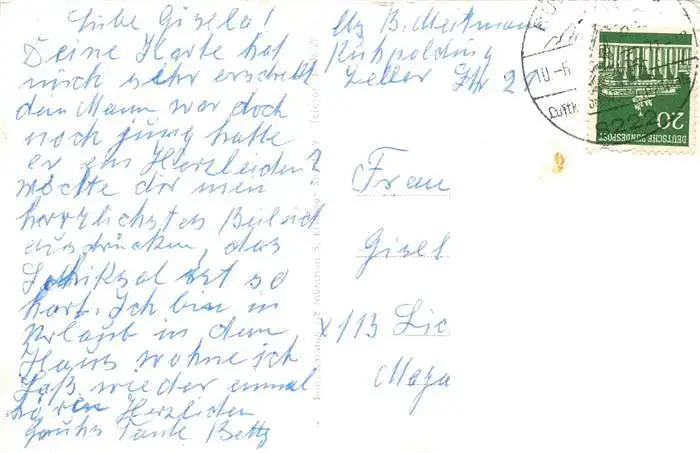 Liebe Gisela!
Deine Karte hat
mich sehr erschrekt
dein Mann war doch
noch jung hatte
er ein Herzleiden?
möchte dir mein
herzlichstes Beileid
ausdrücken, das
Schiksal ist so
hart. Ich bin in
Urlaub in dem
Haus wohne ich
Laß wieder einmal
hören Herzlichen
Gruhs Tante Betty
Abs B. Meitmann
Ruhpolding
Zeller Str 2
Frau
Gisel
X113 Lic
Maya
8222
20
DEUTSCHE BUNDESPOST